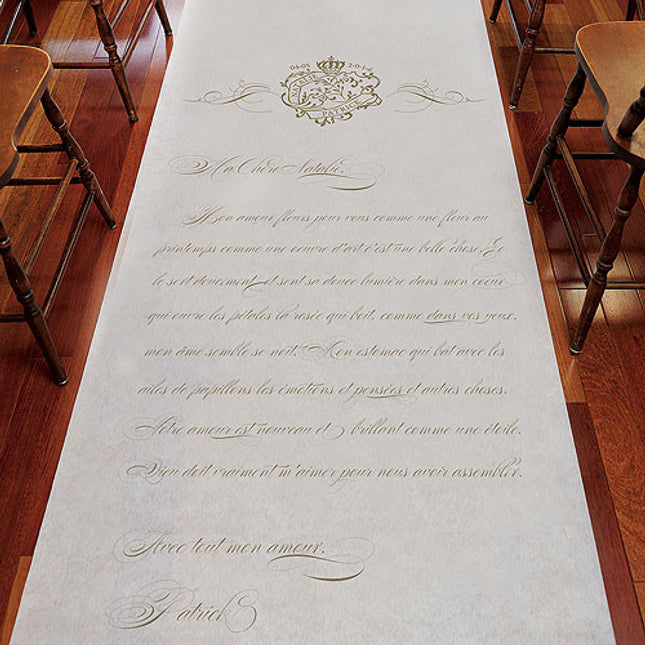 04.05 2.0.1.6
NATALIE
PATRICE
Ma Chère Natalie,
Mon amour fleurs pour vous comme une fleur au
printemps comme une oeuvre d'art c'est une belle chose. Je
le sert doucement et sont sa douce lumière dans mon coeur
qui ouvre les pétales la rosée qui boit, comme dans vos yeux,
mon âme semble se noit. Mon estomac qui bat avec les
ailes de papillons les émotions et pensées et autres choses.
Votre amour est nouveau et brillant comme une étoile.
Dieu doit vraiment m'aimer pour nous avoir assembler.
Avec tout mon amour,
Patrick